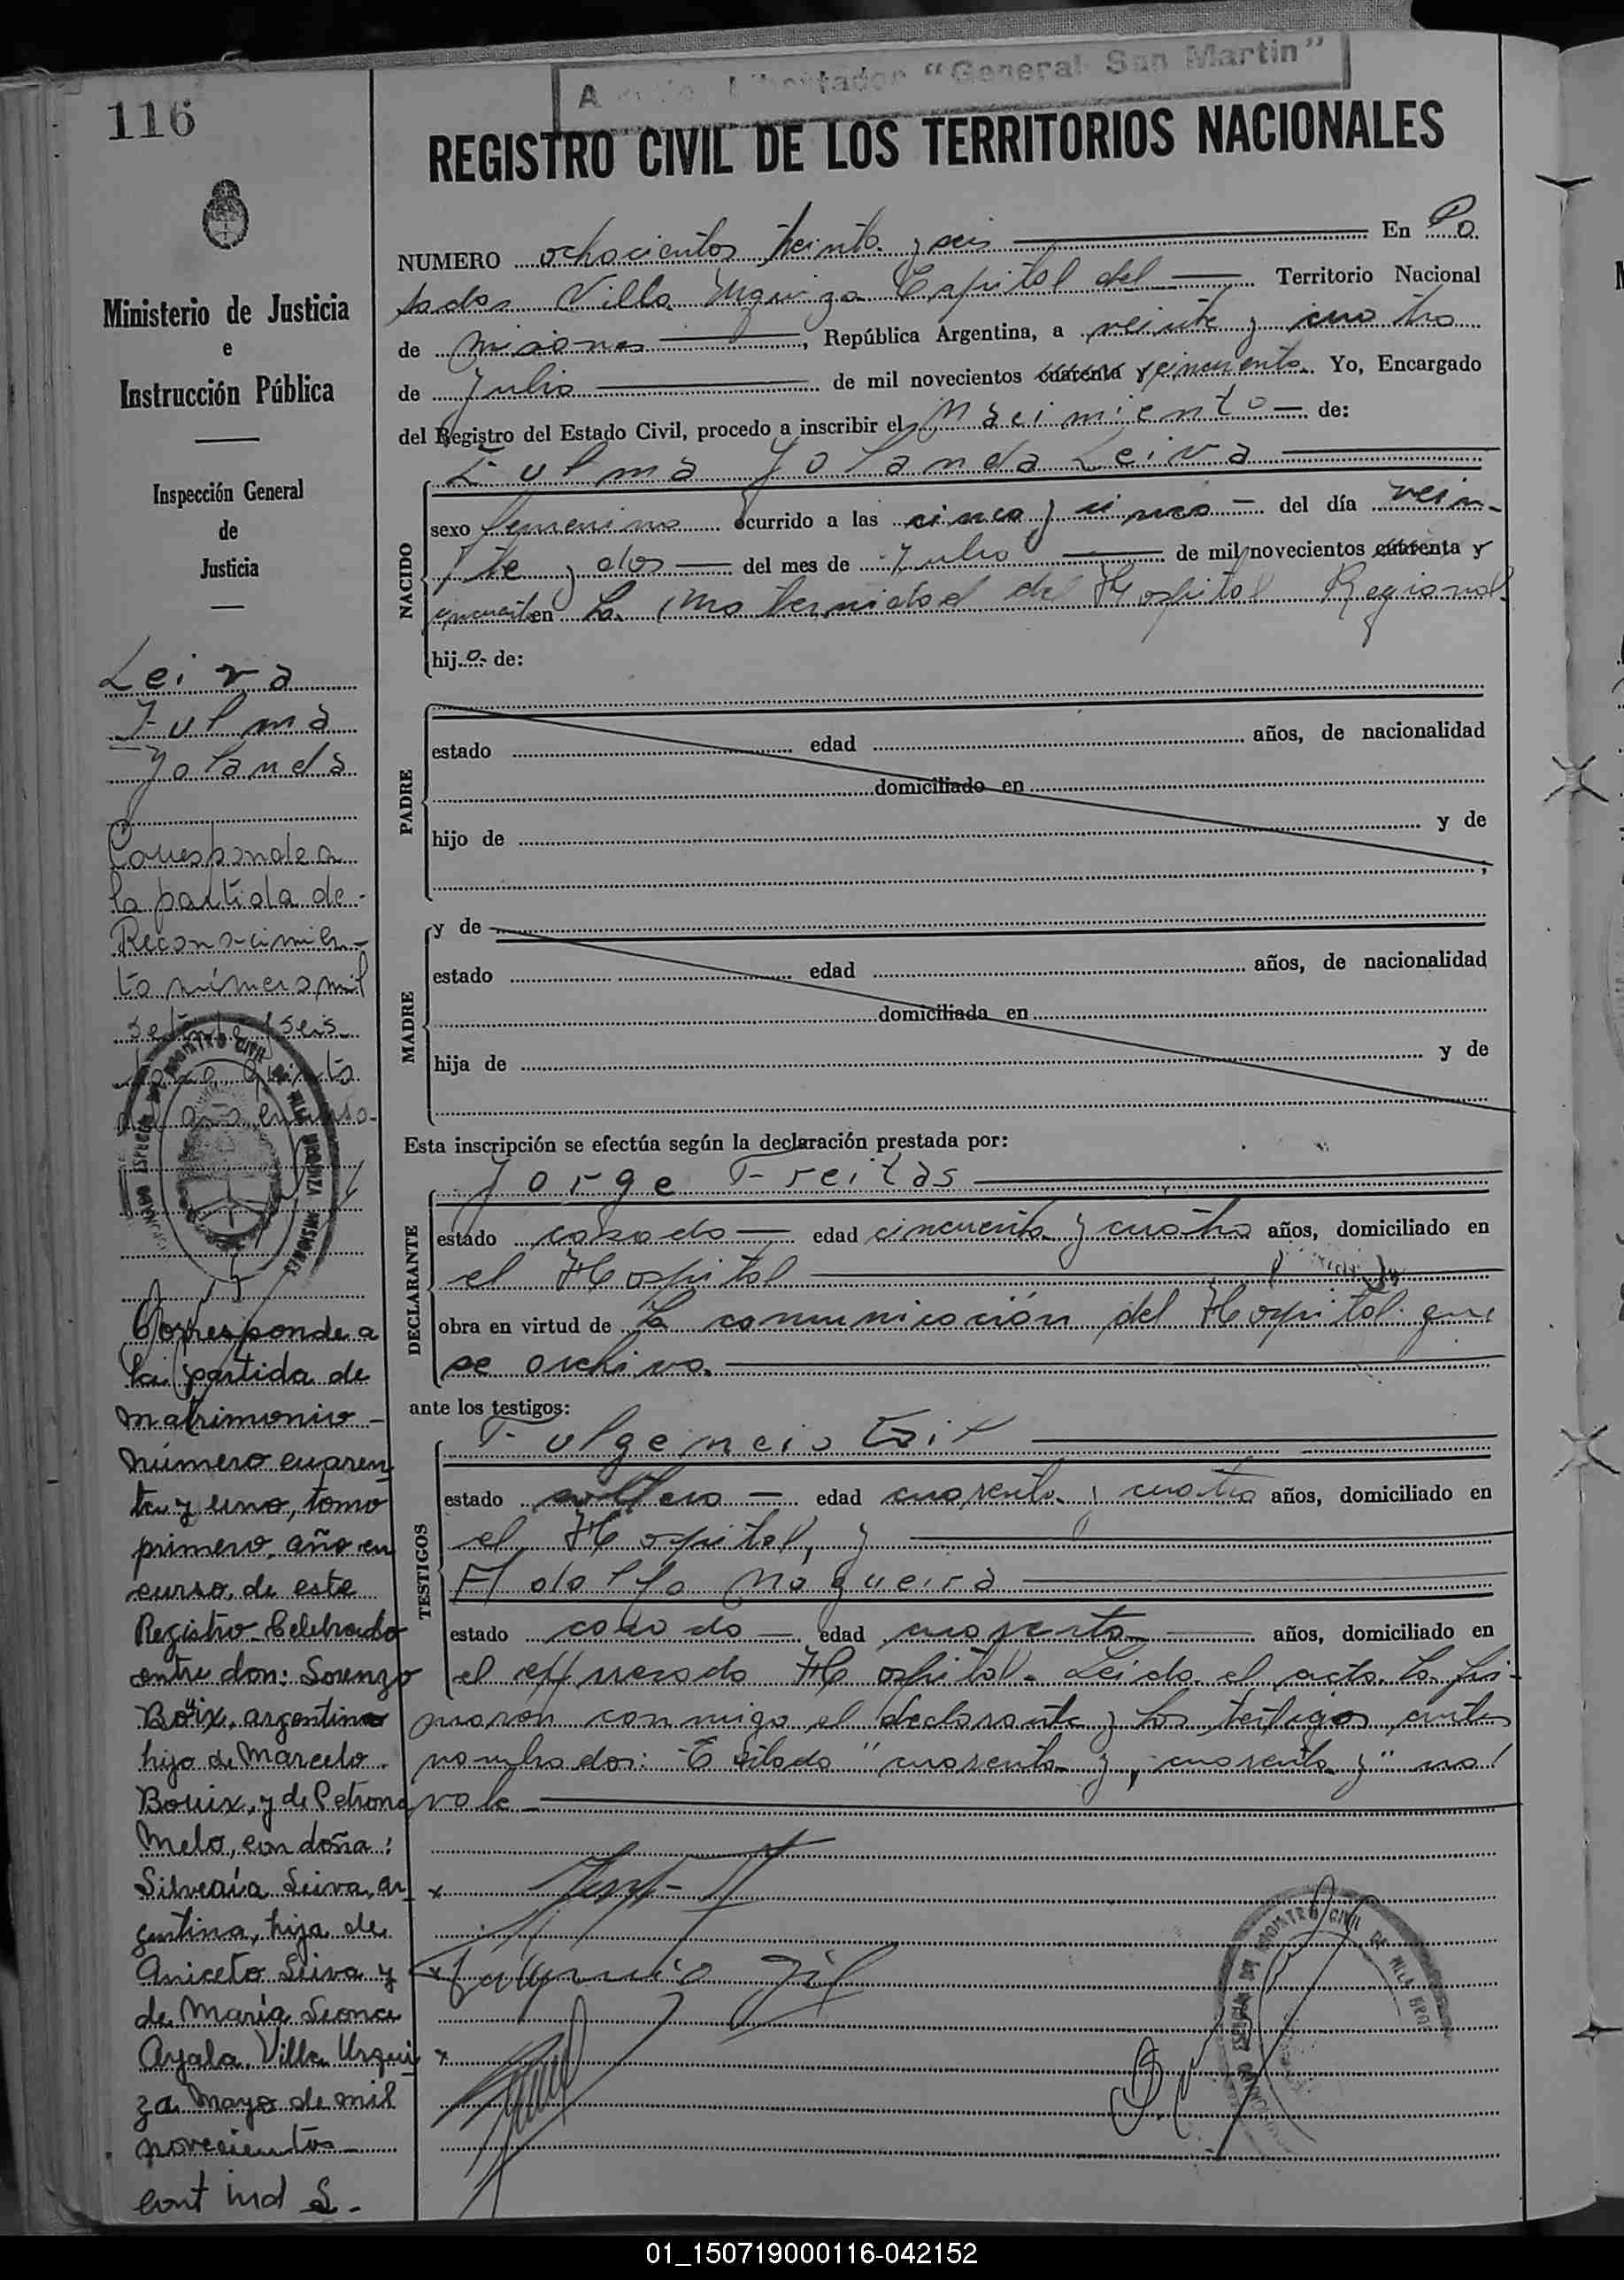 116
"General San Martin"
REGISTRO CIVIL DE LOS TERRITORIOS NACIONALES
Ministerio de Justicia
e
Instrucción Pública
Inspección General
de
Justicia
NUMERO ochocientos treinta y seis En Po
sadas Villa Urquiza Capital del Territorio Nacional
de Misiones, República Argentina, a veinte y cuatro
de Julio de mil novecientos cuarenta y cincuenta. Yo, Encargado
del Registro del Estado Civil, procedo a inscribir el Nacimiento de:
Zulma Yolanda Leiva
NACIDO
sexo femenino ocurrido a las cinco y cinco del día vein-
te y dos del mes de Julio de mil novecientos cuarenta y
cincuenta en la Maternidad del Hospital Regional
hij a de:
PADRE
estado edad años, de nacionalidad
domiciliado en
hijo de y de
;
MADRE
y de
estado edad años, de nacionalidad
domiciliada en
hija de y de
Esta inscripción se efectúa según la declaración prestada por:
Jorge Freitas
DECLARANTE
estado casado edad cincuenta y cuatro años, domiciliado en
el Hospital
obra en virtud de la comunicación del Hospital que
se archiva.
ante los testigos:
TESTIGOS
Fulgencio Gil
estado soltero edad cuarenta y cuatro años, domiciliado en
el Hospital, y
Adolfo Nogueira
estado casado edad cuarenta años, domiciliado en
el expresado Hospital. Leida el acta la fir-
maron conmigo el declarante y los testigos antes
nombrados: "cuarenta y, cuarenta y" no
vale
Fulgencio Gil
Leiva
Zulma
Yolanda
Corresponde a
la partida de
Reconocimien-
to número mil
setenta y seis
tomo quinto
del año en curso.
Corresponde a
la partida de
matrimonio
número cuaren
ta y uno, tomo
primero, año en
curso, de este
Registro Celebrado
entre don: Lorenzo
Boix, argentino
hijo de Marcelo
Bouix, y de Petrona
Melo, con doña:
Silveria Leiva, ar
gentina, hija de
Aniceto Leiva y
de María Leonca
Ayala. Villa Urqui
za Mayo de mil
novecientos
REGISTRO CIVIL DE VILLA URQUIZA MISIONES
REGISTRO CIVIL DE VILLA URQU
01_150719000116-042152